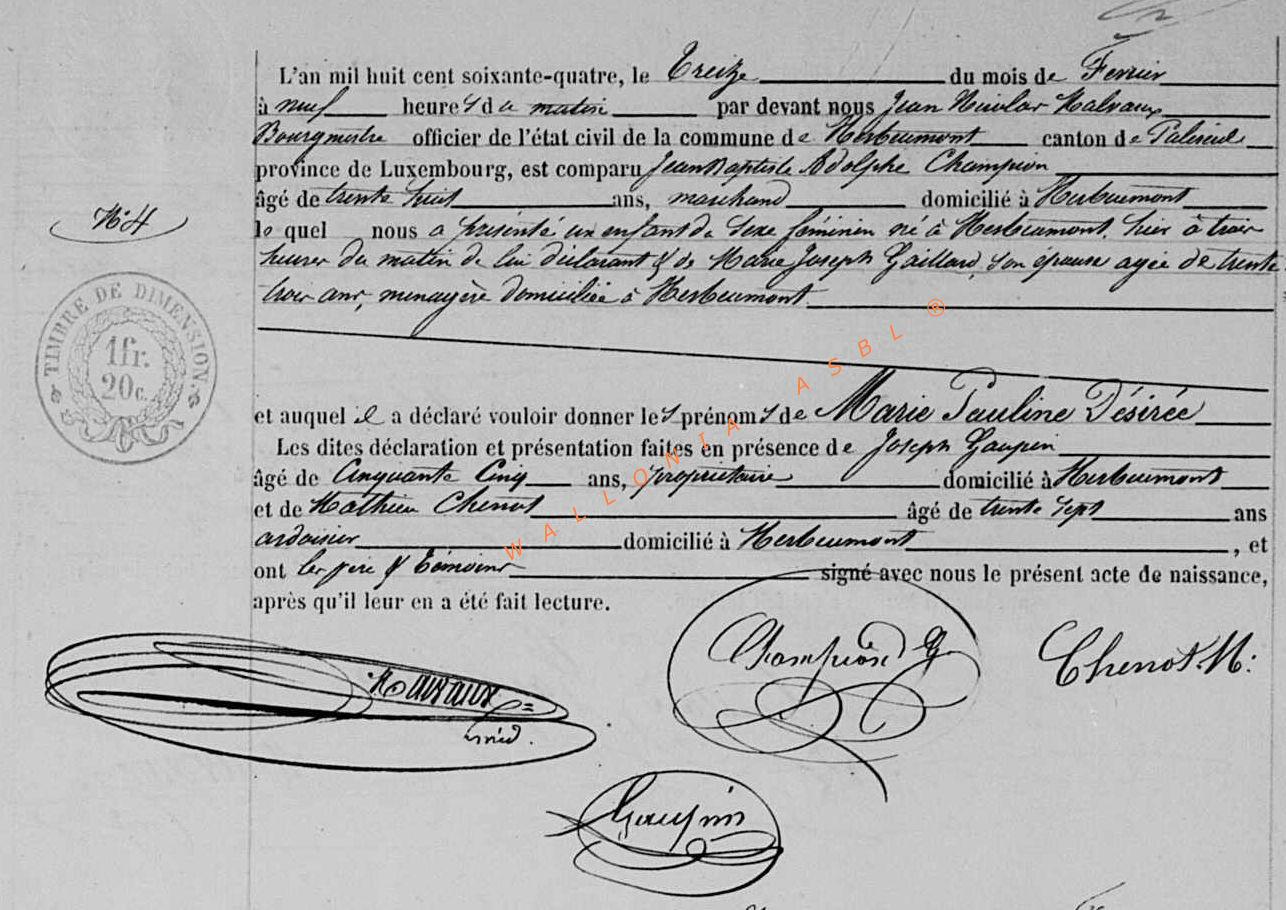 L'an mil huit cent soixante-quatre, le Treize du mois de Fevrier
à neuf heures du matin par devant nous Jean Nicolas Malvaux
Bourgmestre officier de l'état civil de la commune de Herbeumont canton de Paliseul
province de Luxembourg, est comparu Jean Baptiste Adolphe Champion
âgé de trente huit ans, marchand domicilié à Herbeumont
le quel nous a présenté un enfant du sexe féminin né à Herbeumont, hier à trois
heures du matin de lui déclarant & de Marie Joseph Gaillard, son épouse agée de trente
trois ans, menagère domiciliée à Herbeumont
et auquel il a déclaré vouloir donner les prénoms de Marie Pauline Désirée
Les dites déclaration et présentation faites en présence de Joseph Gaupin
âgé de Cinquante Cinq ans, propriétaire domicilié à Herbeumont
et de Mathieu Chenot âgé de trente sept ans
ardoisier domicilié à Herbeumont, et
ont les père & témoins signé avec nous le présent acte de naissance,
après qu'il leur en a été fait lecture.
N° 4
TIMBRE DE DIMENSION.
1fr.
20c.
WALLONIA ASBL ®
Malvaux
Champion
Chenot. M:
Gaupin